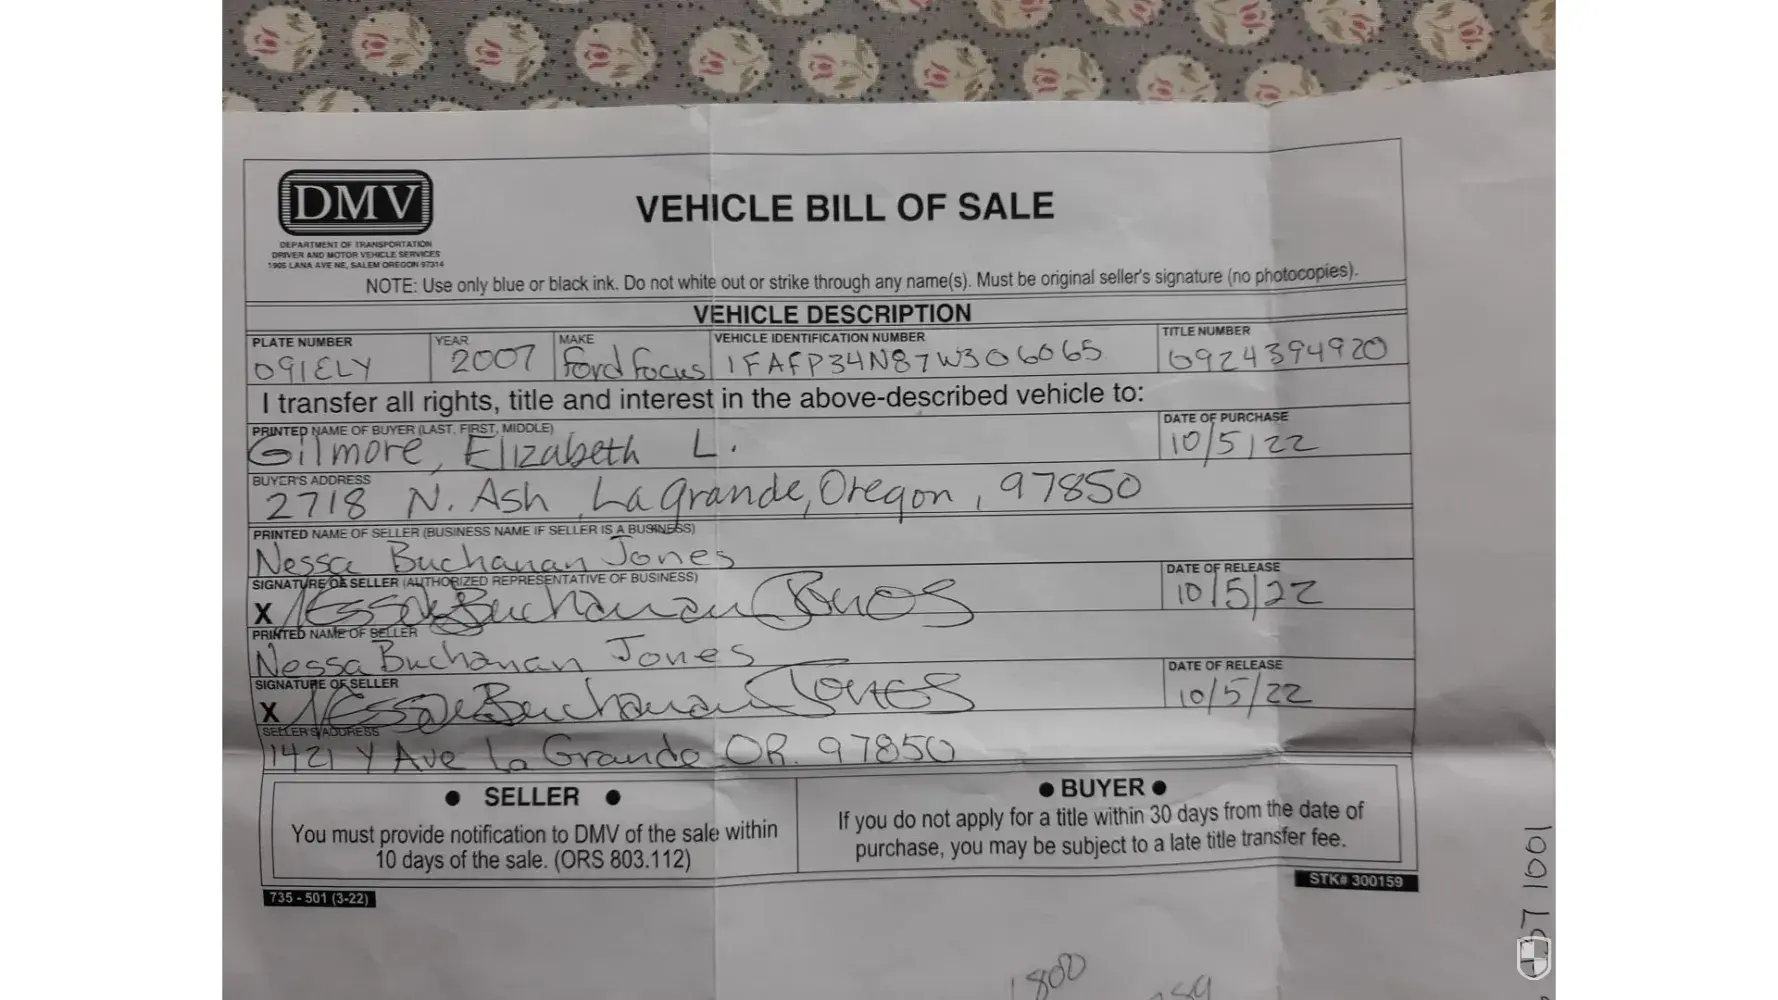 DMV
DEPARTMENT OF TRANSPORTATION
DRIVER AND MOTOR VEHICLE SERVICES
1905 LANA AVE NE, SALEM OREGON 97314
VEHICLE BILL OF SALE
NOTE: Use only blue or black ink. Do not white out or strike through any name(s). Must be original seller's signature (no photocopies).
VEHICLE DESCRIPTION
PLATE NUMBER YEAR MAKE VEHICLE IDENTIFICATION NUMBER TITLE NUMBER
091ELY 2007 Ford Focus 1FAFP34N87W306065 0924394920
I transfer all rights, title and interest in the above-described vehicle to:
PRINTED NAME OF BUYER (LAST, FIRST, MIDDLE) DATE OF PURCHASE
Gilmore, Elizabeth L. 10/5/22
BUYER'S ADDRESS
2718 N. Ash, La Grande, Oregon, 97850
PRINTED NAME OF SELLER (BUSINESS NAME IF SELLER IS A BUSINESS)
Nessa Buchanan Jones
SIGNATURE OF SELLER (AUTHORIZED REPRESENTATIVE OF BUSINESS) DATE OF RELEASE
X Nessa Buchanan Jones 10/5/22
PRINTED NAME OF SELLER
Nessa Buchanan Jones
SIGNATURE OF SELLER DATE OF RELEASE
X Nessa Buchanan Jones 10/5/22
SELLER'S ADDRESS
1421 Y Ave La Grande OR. 97850
● SELLER ●
You must provide notification to DMV of the sale within
10 days of the sale. (ORS 803.112)
● BUYER ●
If you do not apply for a title within 30 days from the date of
purchase, you may be subject to a late title transfer fee.
735 - 501 (3-22)
STK# 300159
1001
1800